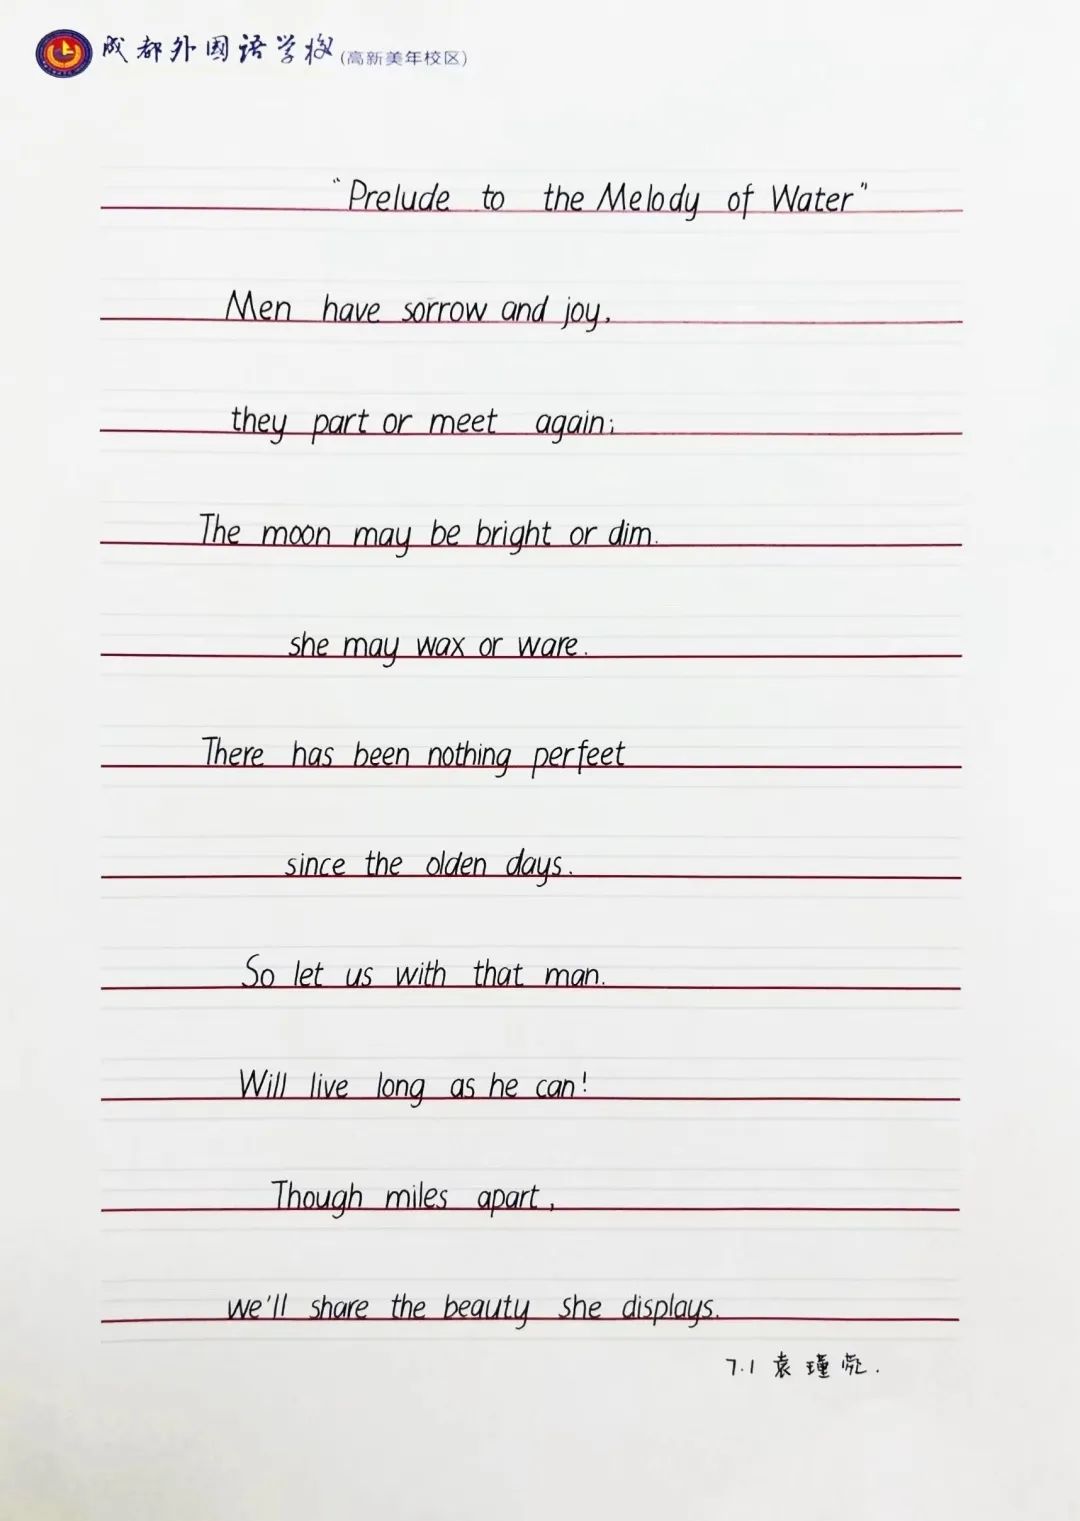 成都外国语学校(高新美年校区)
"Prelude to the Melody of Water"
Men have sorrow and joy,
they part or meet again;
The moon may be bright or dim.
she may wax or ware.
There has been nothing perfeet
since the olden days.
So let us with that man.
Will live long as he can!
Though miles apart,
we'll share the beauty she displays.
7.1 袁瑾